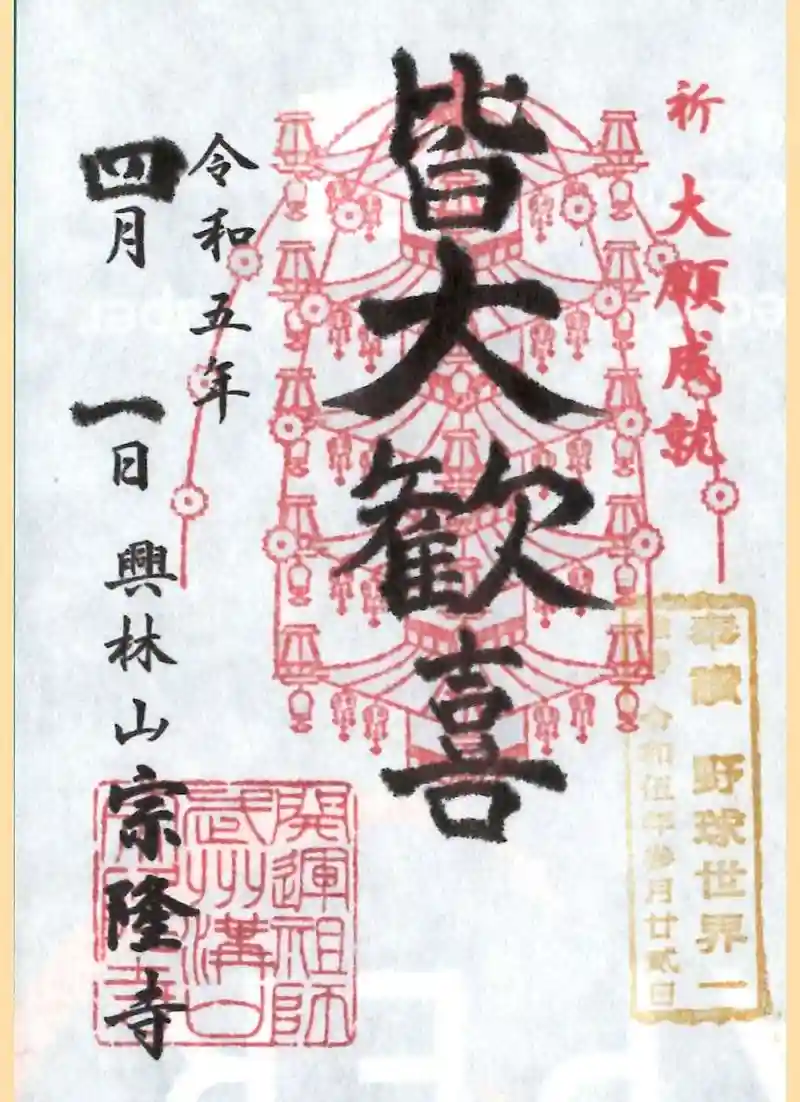 祈 大願成就
奉讃 野球世界一
令和伍年参月廿弐日
皆大歓喜
令和五年
四月 一日 興林山 宗隆寺
開運祖師
武州溝口